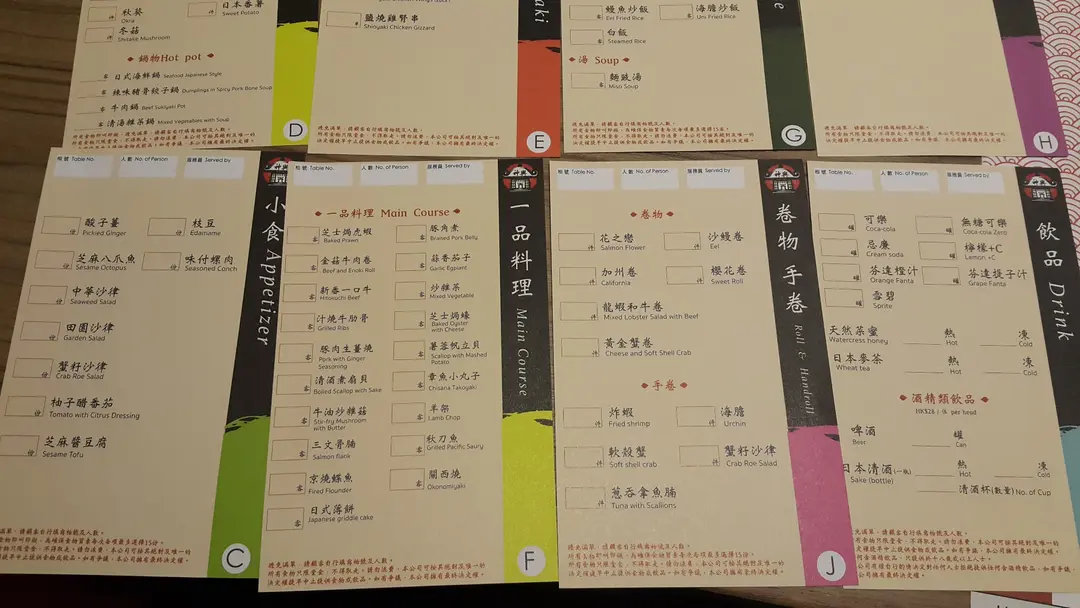 秋葵
Okra
日本番薯
Sweet Potato
冬菇
Shitake Mushroom
鍋物Hot pot
日式海鮮鍋 Seafood Japanese Style
辣味豬骨餃子鍋 Dumplings in Spicy Pork Bone Soup
牛肉鍋 Beef Sukiyaki Pot
清湯雜菜鍋 Mixed Vegetables with Soup
D
鹽燒雞腎串
Shioyaki Chicken Gizzard
aki
E
鰻魚炒飯
Eel Fried Rice
海膽炒飯
Uni Fried Rice
白飯
Steamed Rice
湯 Soup
麵豉湯
Miso Soup
G
H
枱號 Table No.
人數 No. of Person
服務員 Served by
小食 Appetizer
酸子薑
Pickled Ginger
枝豆
Edamame
芝麻八爪魚
Sesame Octopus
味付螺肉
Seasoned Conch
中華沙律
Seaweed Salad
田園沙律
Garden Salad
蟹籽沙律
Crab Roe Salad
柚子醋番茄
Tomato with Citrus Dressing
芝麻醬豆腐
Sesame Tofu
C
枱號 Table No.
人數 No. of Person
服務員 Served by
一品料理 Main Course
一品料理 Main Course
芝士焗虎蝦
Baked Prawn
豚角煮
Braised Pork Belly
金菇牛肉卷
Beef and Enoki Roll
蒜香茄子
Garlic Eggplant
新香一口牛
Hitokuchi Beef
炒雜菜
Mixed Vegetable
汁燒牛肋骨
Grilled Ribs
芝士焗蠔
Baked Oyster
with Cheese
豚肉生薑燒
Pork with Ginger
Seasoning
薯蓉帆立貝
Scallop with Mashed
Potato
清酒煮扇貝
Boiled Scallop with Sake
章魚小丸子
Chisana Takoyaki
牛油炒雜菇
Stir-fry Mushroom
with Butter
羊架
Lamb Chop
三文膏腩
Salmon flank
秋刀魚
Grilled Pacific Saury
京燒鰈魚
Fired Flounder
關西燒
Okonomiyaki
日式薄餅
Japanese griddle cake
F
枱號 Table No.
人數 No. of Person
服務員 Served by
卷物 手卷 Roll & Handroll
卷物
花之戀
Salmon Flower
沙鰻卷
Eel
加州卷
California
櫻花卷
Sweet Roll
龍蝦和牛卷
Mixed Lobster Salad with Beef
黃金蟹卷
Cheese and Soft Shell Crab
手卷
炸蝦
Fried shrimp
海膽
Urchin
軟殼蟹
Soft shell crab
蟹籽沙律
Crab Roe Salad
蔥吞拿魚腩
Tuna with Scallions
J
枱號 Table No.
人數 No. of Person
服務員 Served by
飲品 Drink
可樂
Coca-cola
無糖可樂
Coca-cola Zero
忌廉
Cream soda
檸檬+C
Lemon +C
芬達橙汁
Orange Fanta
芬達提子汁
Grape Fanta
雪碧
Sprite
天然菜蜜
Watercress honey
熱
Hot
凍
Cold
日本麥茶
Wheat tea
熱
Hot
凍
Cold
酒精類飲品
HK$28 / 位 per head
啤酒
Beer
罐
Can
日本清酒(一瓶)
Sake (bottle)
熱
Hot
凍
Cold
清酒杯(數量) No. of Cup